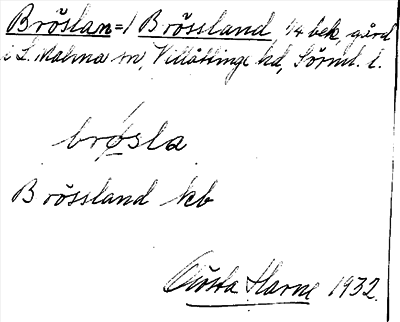 Bröslan =/ Brössland, 1/4 bek, gård
i L. Malma sn, Villåttinge hd, Sörml. l.
brösla
Brössland kb
Gösta Harne 1932.